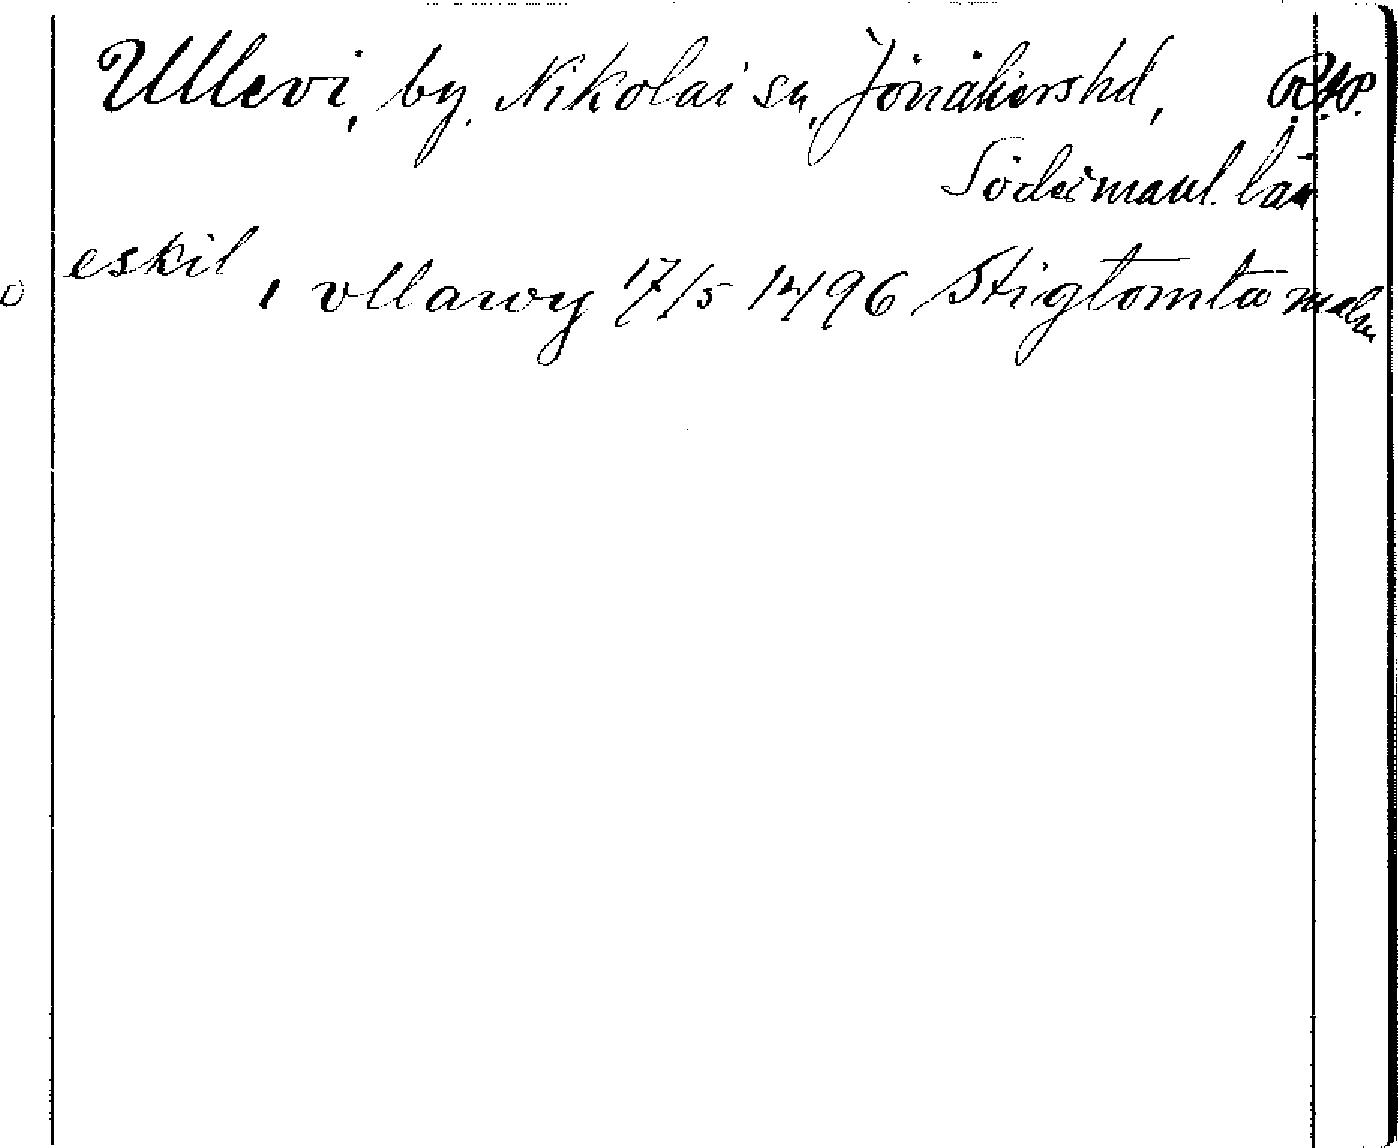 Ullevi, by, Nikolai sn, Jönåkershd, R.A.P.
Södermanl. län
o eskil i vllawy 17/5 1496 Stigtomta malm